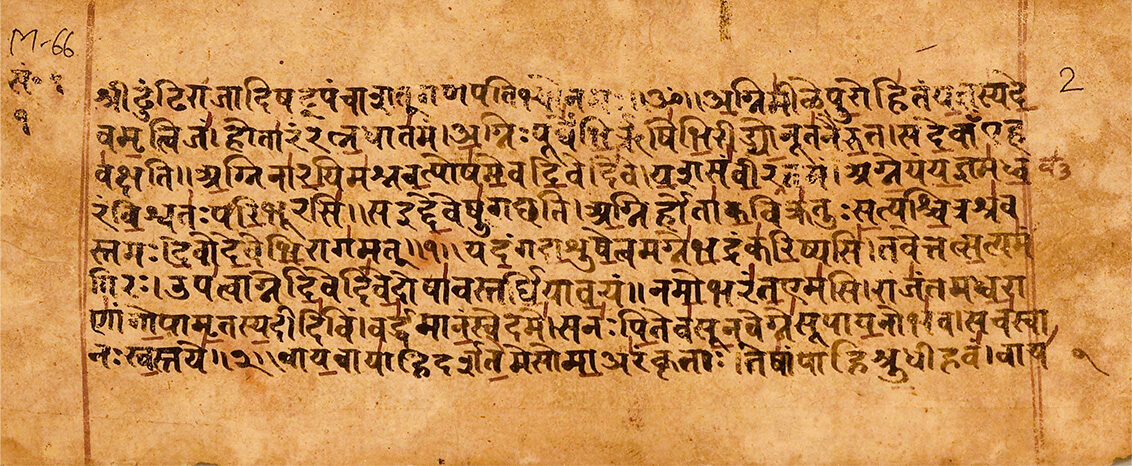 M-66
सं॰ १
१
2
श्रीढुंढिराजादिषट्पंचाशत् गणपतिभ्योनमः।ॐ।अग्निमीळेपुरोहितंयज्ञस्यदे
वमृत्विजं।होतारंरत्नधातमं।अग्निःपूर्वेभिर्ऋषिभिरीड्योनूतनैरुत।सदेवाँएह
वक्षति॥अग्निनारयिमश्नवत्पोषमेवदिवेदिवे।यशसंवीरवत्तमं।अग्नेयंयज्ञमध्व
रंविश्वतःपरिभूरसि।सइद्देवेषुगछति।अग्निर्होताकविक्रतुःसत्यश्चित्रश्रव
स्तमः।देवोदेवेभिरागमत्॥१॥यदंगदाशुषेत्वमग्नेभद्रंकरिष्यसि।तवेत्तत्सत्यमं
गिरः।उपत्वाग्नेदिवेदिवेदोषावस्तर्धियावयं॥नमोभरंतएमसि।राजंतमध्वरा
णांगोपामृतस्यदीदिविं।वर्द्धमानंस्वेदमे।सनःपितेवसूनवेग्नेसूपायनोभव।सचस्वा
नःस्वस्तये॥२॥वायवायाहिदर्शतेमेसोमाअरंकृताः।तेषांपाहिश्रुधीहवं।वाय १